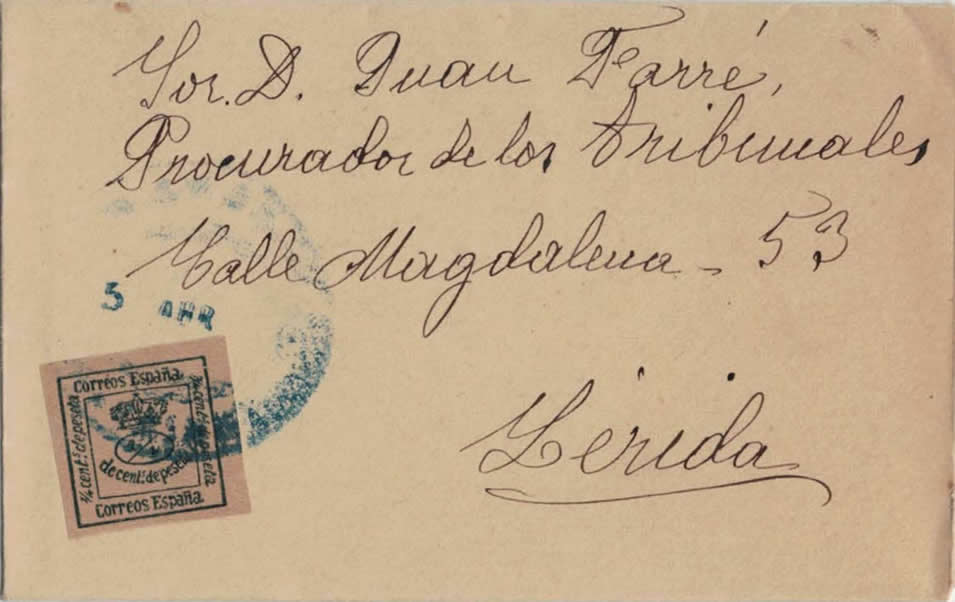 Sor. D. Juan Farré,
Procurador de los Tribunales
Calle Magdalena - 53
Lérida
5 ABR
Correos España
¼ cent.s de peseta
¼ cent.s de peseta
de cent.s de peseta
Correos España